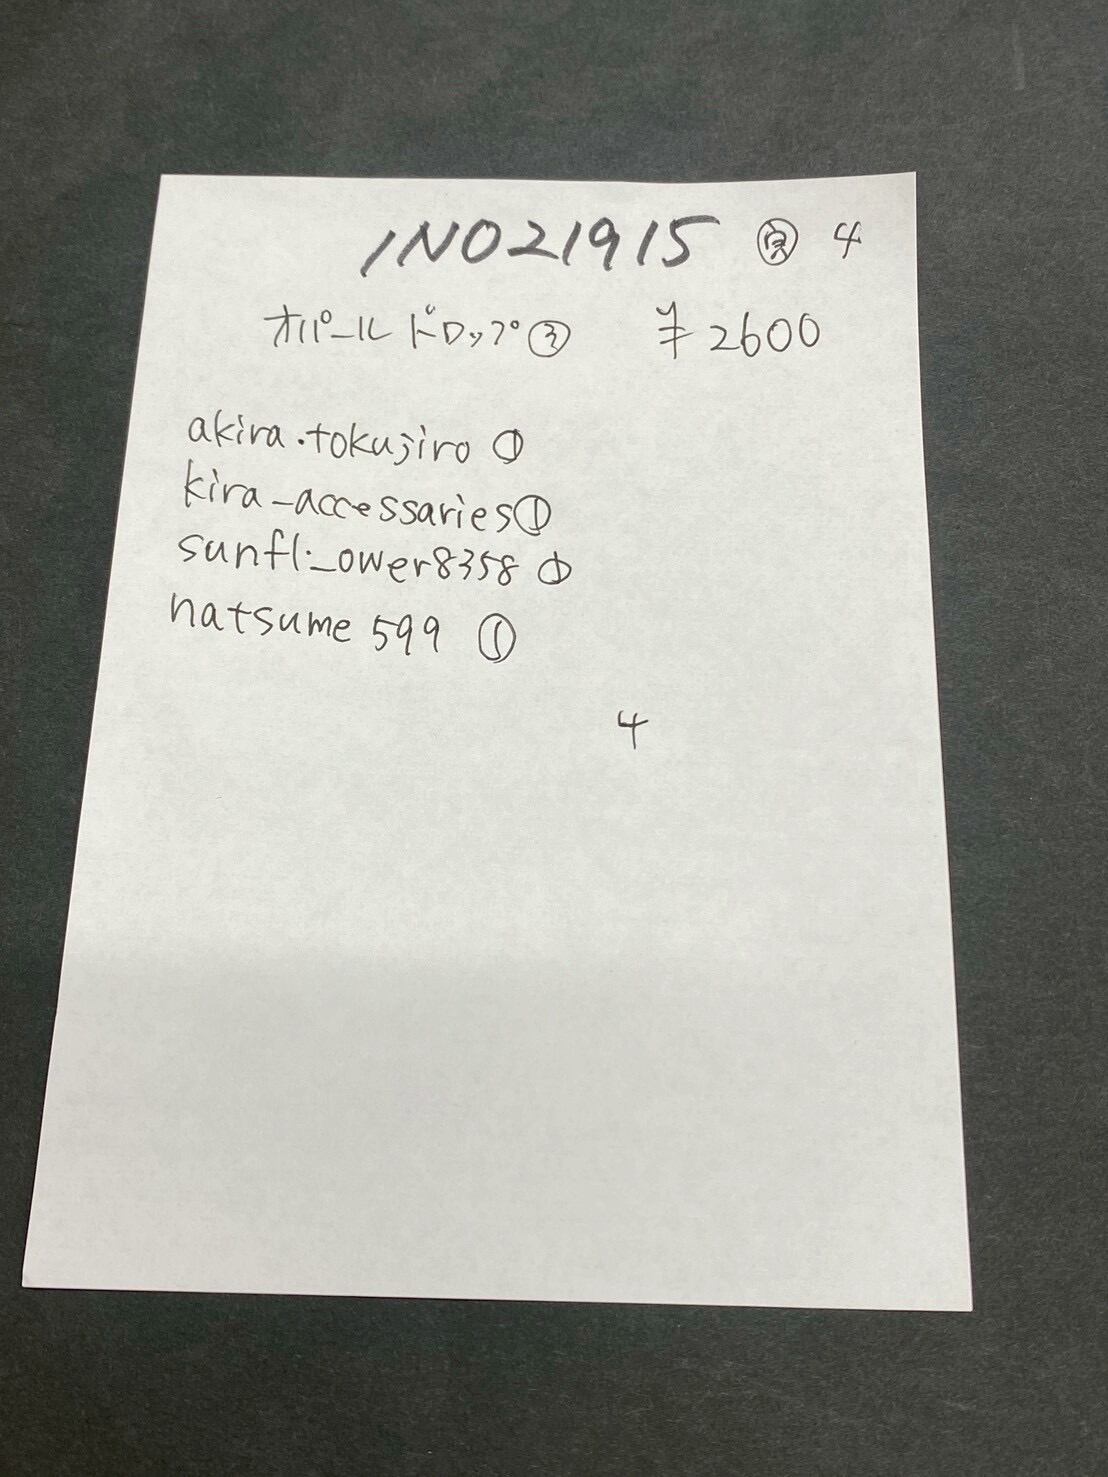 INO21915 ㊞ 4
オパールドロップ③ ¥2600
akira.tokujiro ①
kira_accessaries①
sunfl._ower8358 ①
natsume599 ①
4